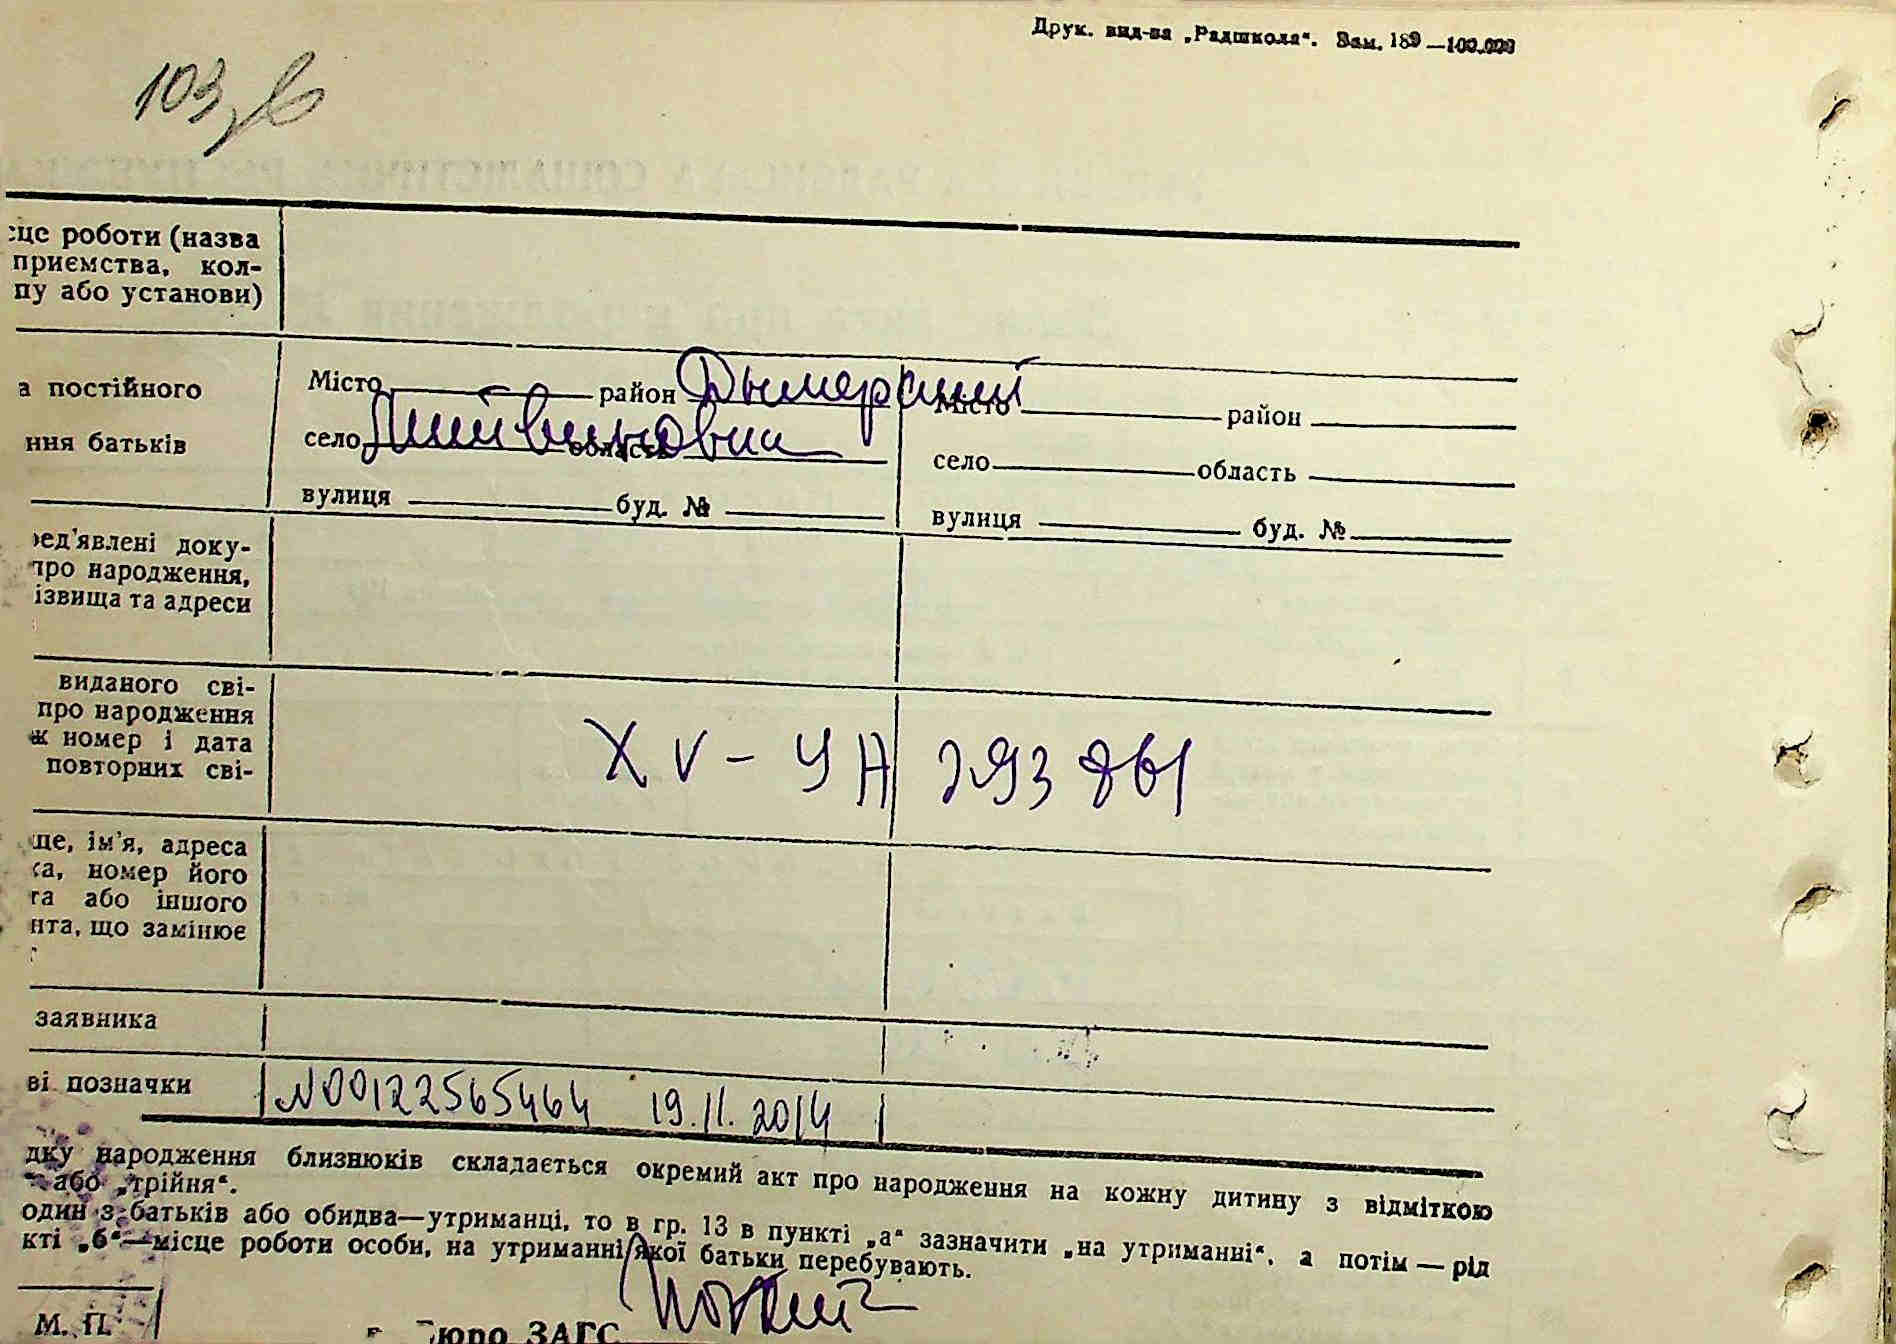 Друк. вид-ва „Радшкола“. Зам. 189 —100.000
103
сце роботи (назва
приємства, кол-
пу або установи)
а постійного
ння батьків
Місто район Димерский
село Литвиновка область
вулиця буд. №
Місто район
село область
вулиця буд. №
ред'явлені доку-
про народження,
ізвища та адреси
виданого сві-
про народження
ж номер і дата
повторних сві-
XV - УН 293861
ще, ім'я, адреса
ка, номер його
та або іншого
нта, що замінює
заявника
ві позначки
N00122565464 19.11.2014
дку народження близнюків складається окремий акт про народження на кожну дитину з відміткою
“ або „трійня“.
один з батьків або обидва—утриманці, то в гр. 13 в пункті „а“ зазначити „на утриманні“, а потім — рід
кті „б“—місце роботи особи, на утриманні якої батьки перебувають.
М. П.
Бюро ЗАГС